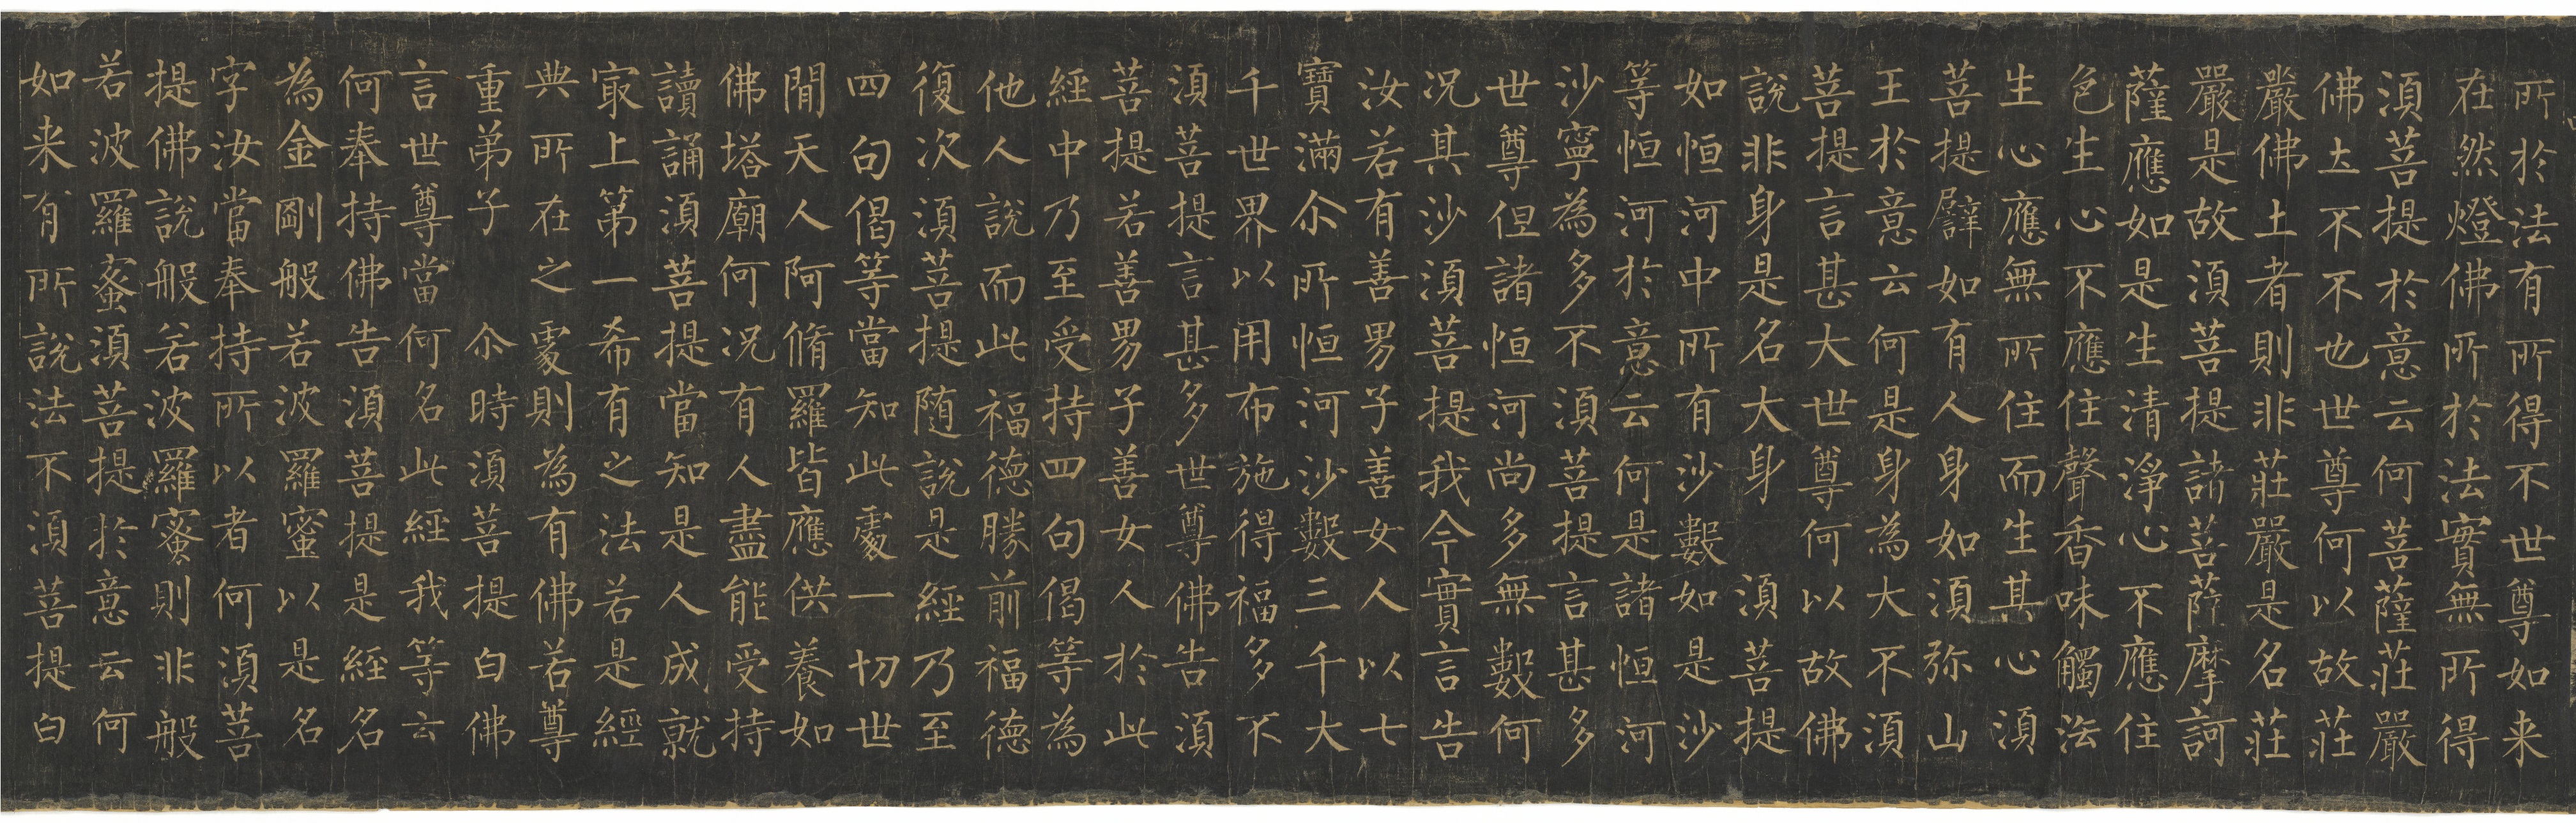 所於法有所得不世尊如来
在然燈佛所於法實無所得
湏菩提於意云何菩薩莊嚴
佛土不不也世尊何以故莊
嚴佛土者則非莊嚴是名莊
嚴是故湏菩提諸菩薩摩訶
薩應如是生清淨心不應住
色生心不應住聲香味觸法
生心應無所住而生其心湏
菩提譬如有人身如湏弥山
王於意云何是身為大不湏
菩提言甚大世尊何以故佛
說非身是名大身　湏菩提
如恒河中所有沙數如是沙
等恒河於意云何是諸恒河
沙寧為多不湏菩提言甚多
世尊但諸恒河尚多無數何
况其沙湏菩提我今實言告
汝若有善男子善女人以七
寶滿尒所恒河沙數三千大
千世界以用布施得福多不
湏菩提言甚多世尊佛告湏
菩提若善男子善女人於此
經中乃至受持四句偈等為
他人說而此福德勝前福德
復次湏菩提随說是經乃至
四句偈等當知此處一切世
間天人阿脩羅皆應供養如
佛塔廟何况有人盡能受持
讀誦湏菩提當知是人成就
㝡上第一希有之法若是經
典所在之處則為有佛若尊
重弟子　尒時湏菩提白佛
言世尊當何名此經我等云
何奉持佛告湏菩提是經名
為金剛般若波羅蜜以是名
字汝當奉持所以者何湏菩
提佛說般若波羅蜜則非般
若波羅蜜湏菩提於意云何
如来有所說法不湏菩提白